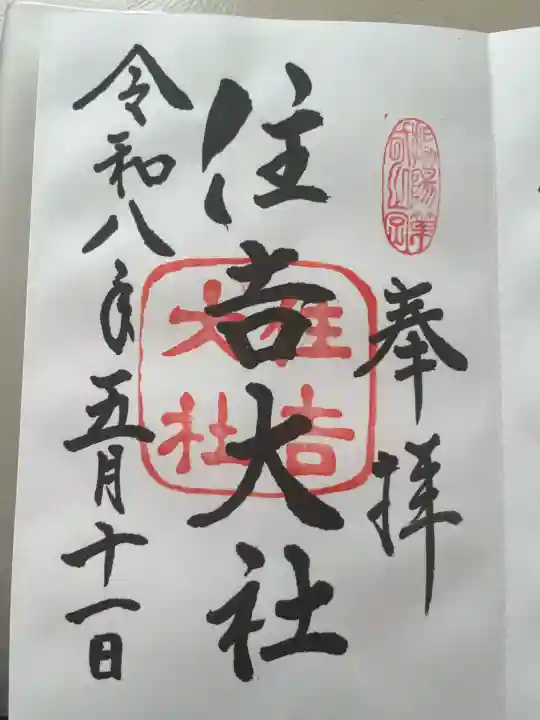 奉拝
住吉大社
住吉
大社
令和八年五月十一日